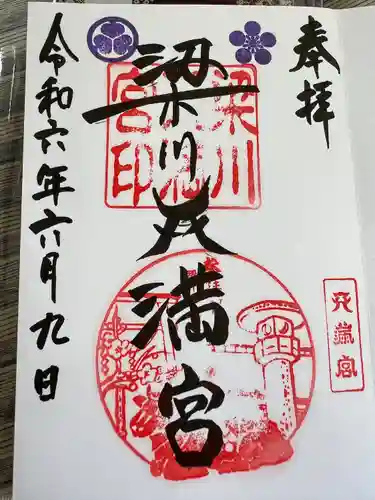 奉拝
梁川天満宮
令和六年六月九日
梁川
宮印
天満宮